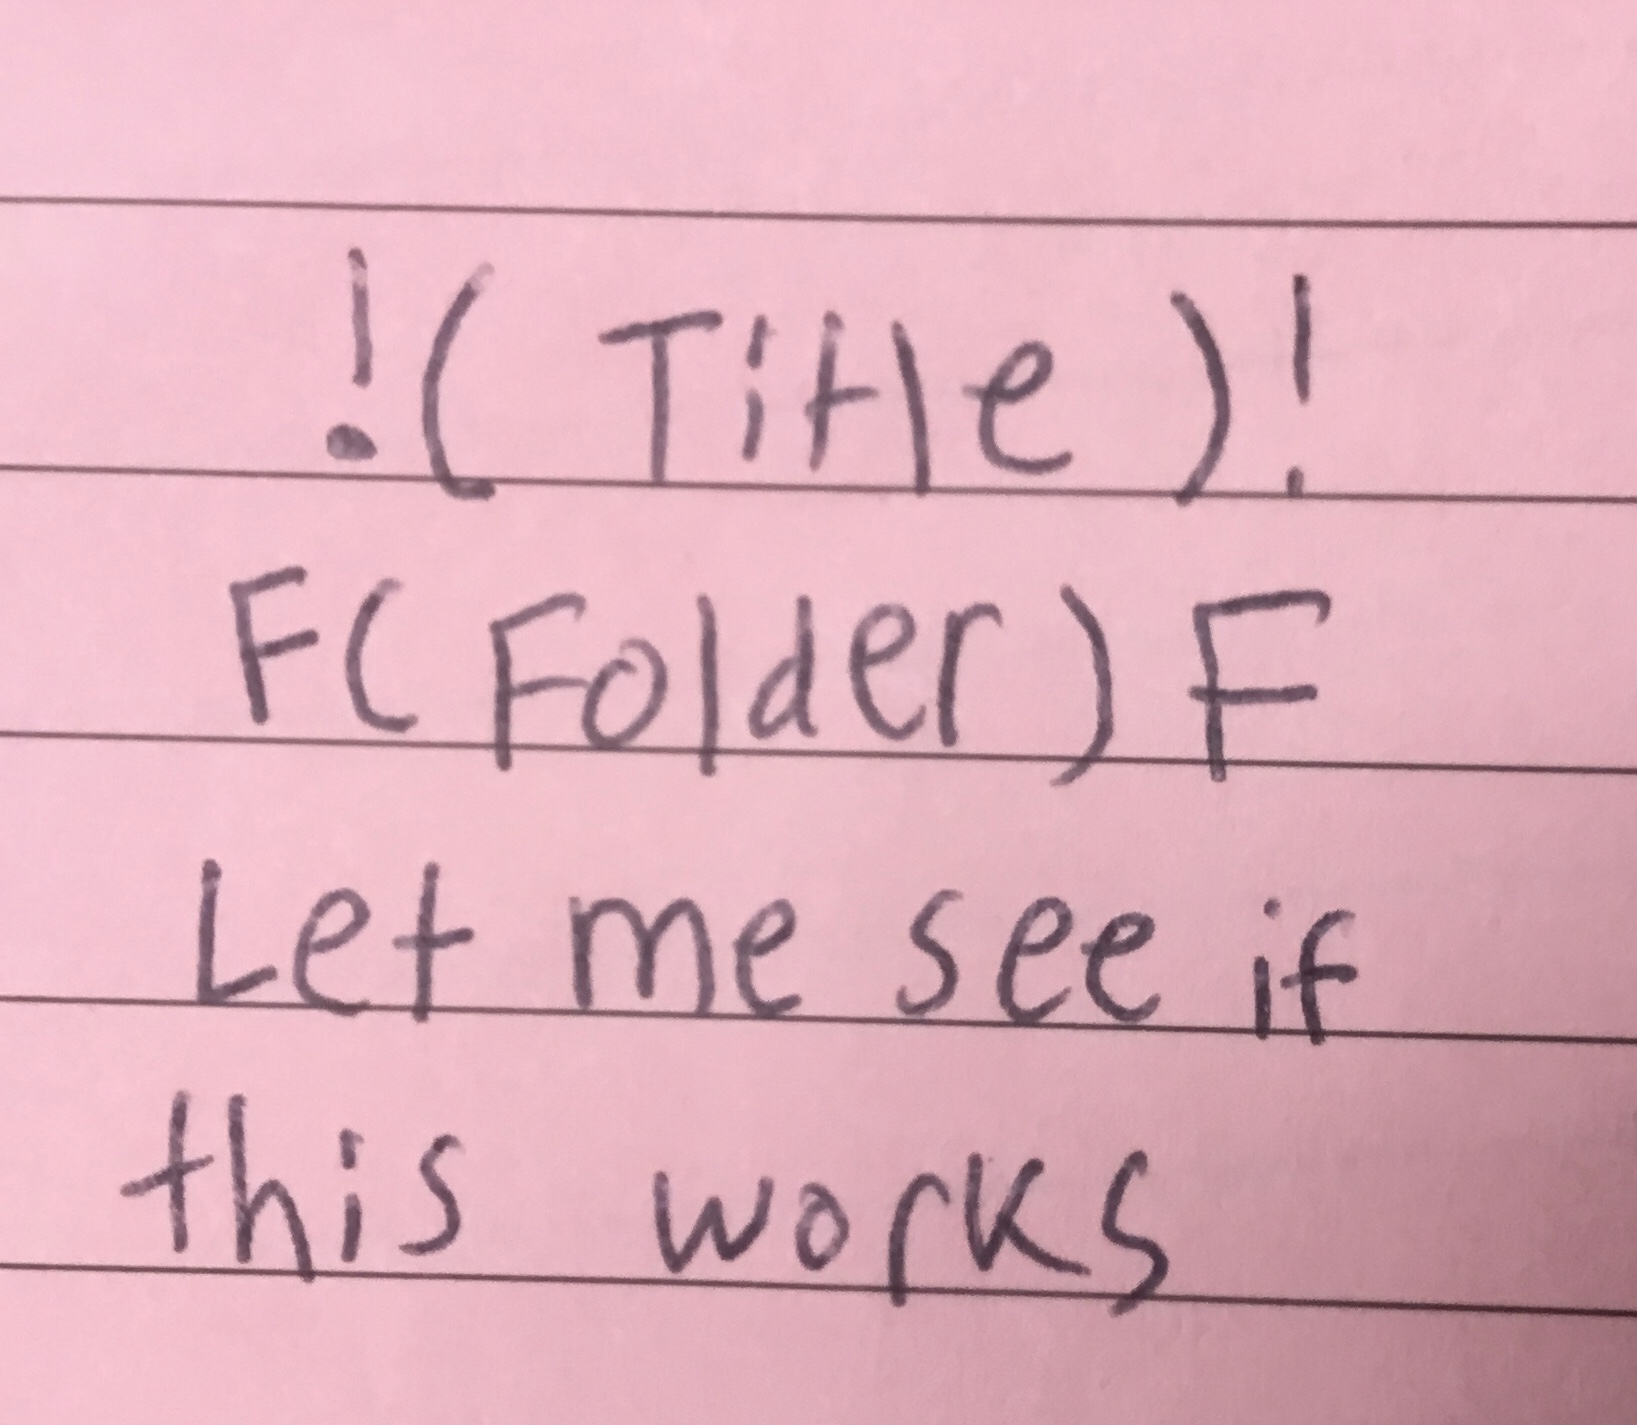 !( Title )!
F( Folder ) F
Let me see if
this works